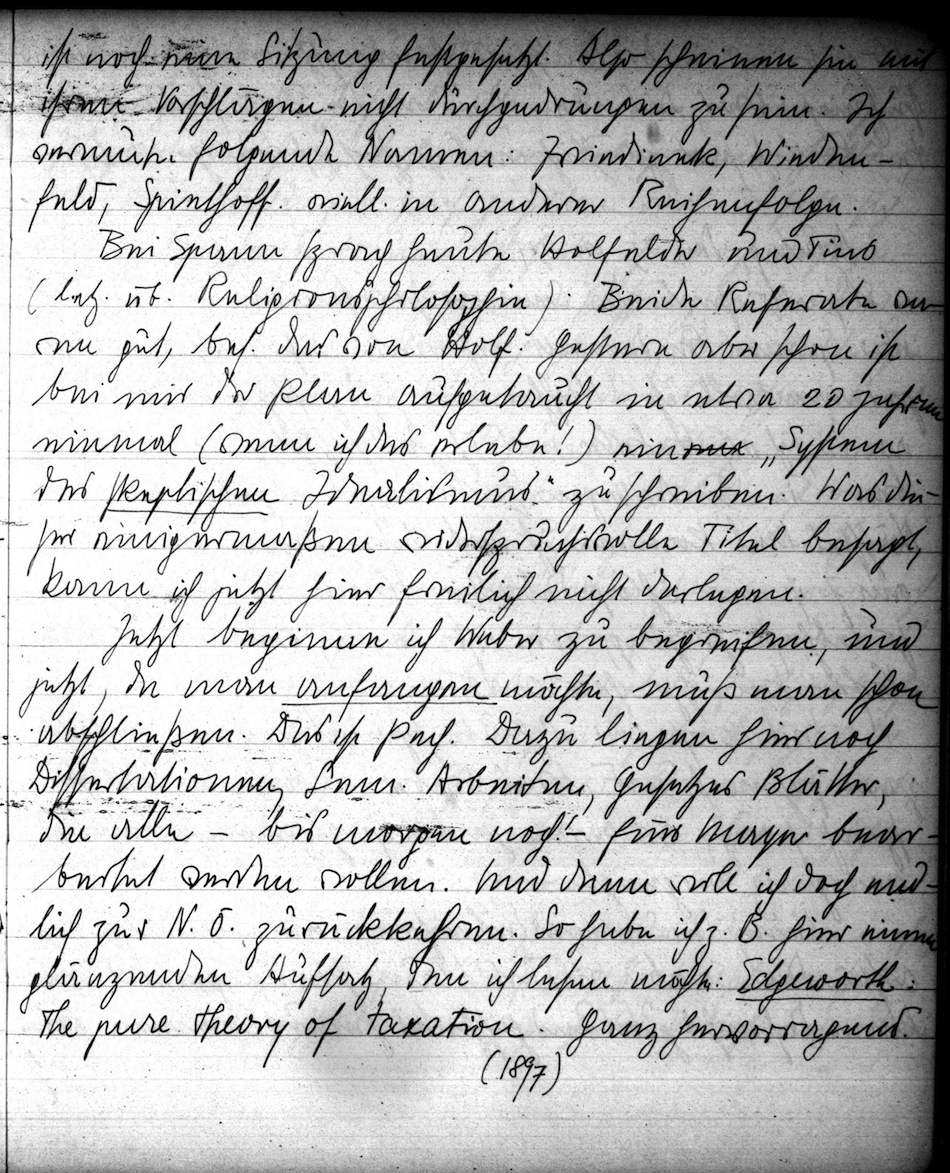 ist noch eine Sitzung festgesetzt. Also scheinen sie mit
ihren Vorschlägen nicht durchgedrungen zu sein. Ich
vermute folgende Namen: Zwiedineck, Wieden-
feld, Spiethoff. viell. in anderer Reihenfolge.
Bei Spann sprach heute Holfelder und
(letz. üb. Religionsphilosophie). Beide Referate wa-
ren gut, bes. das von Holf. Gestern aber schon ist
bei mir der Plan aufgetaucht in etwa 20 Jahren
einmal (wenn ich das erlebe!) ein „System
des skeptischen Idealismus“ zu schreiben. Was die-
ser einigermaßen widerspruchsvolle Titel besagt,
kann ich jetzt hier freilich nicht darlegen.
Jetzt beginne ich Weber zu begreifen, und
jetzt, da man anfangen möchte, muß man schon
abschließen. Das ist Pech. Dazu liegen hier noch
Dissertationen, Sem. Arbeiten, Gesetzes Blätter,
die alle – bis morgen noch! – fürs Mayer bear-
beitet werden wollen. Und dann will ich doch end-
lich zur N. Ö. zurückkehren. So habe ich z. B. hier einen
glänzenden Aufsatz, den ich lesen möchte: Edgeworth:
The pure theory of taxation. Ganz hervorragend.
(1897)